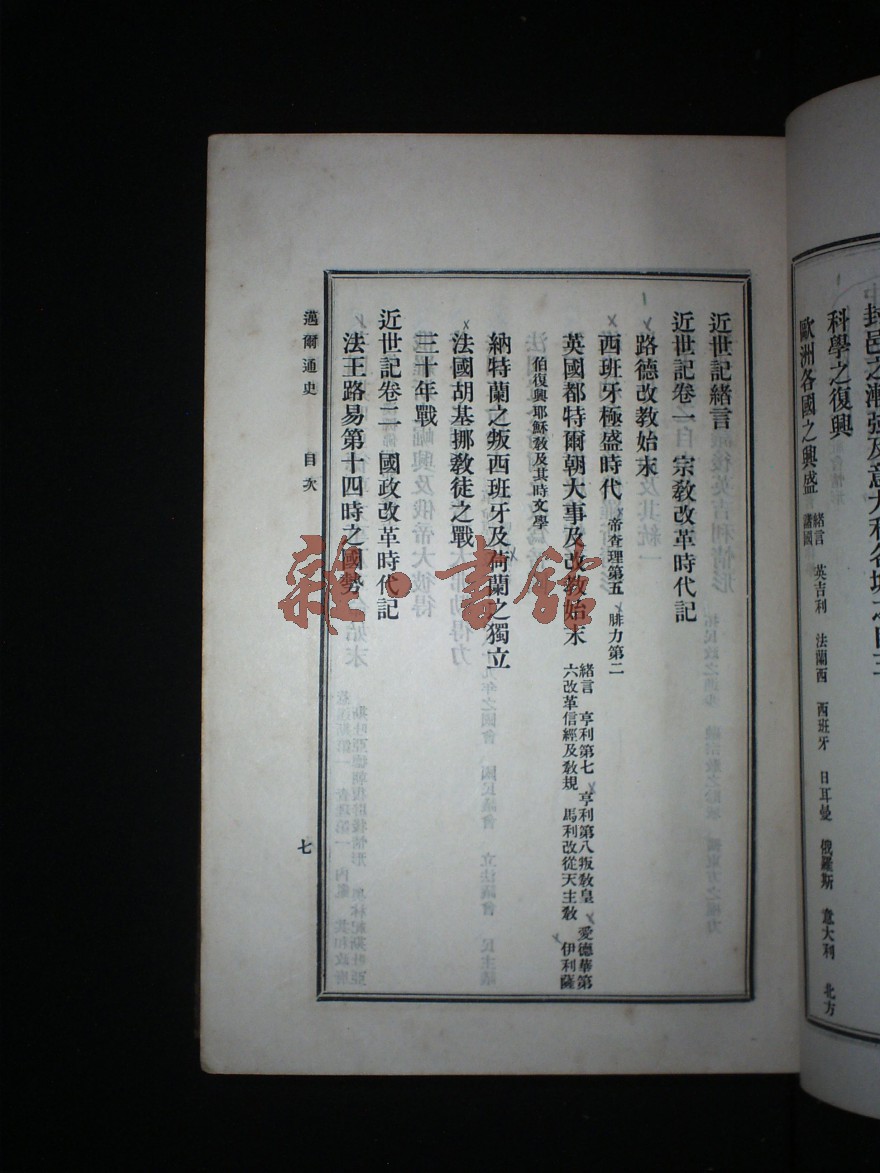 封邑之漸強及意大利各城之自主
科學之復興
歐洲各國之興盛 緒言 英吉利 法蘭西 西班牙 日耳曼 俄羅斯 意大利 北方
諸國
近世記緒言
近世記卷一 宗教改革時代記
路德改教始末
西班牙極盛時代 帝查理第五 腓力第二
英國都特爾朝大事及改教始末 緒言 亨利第七 亨利第八叛教皇 愛德華第
六改革信經及教規 馬利改從天主教 伊利薩
伯復興耶穌教及其時文學
納特蘭之叛西班牙及荷蘭之獨立
法國胡基挪教徒之戰
三十年戰
近世記卷二 國政改革時代記
法王路易第十四時之國勢
邁爾通史 目次 七
雜·書館